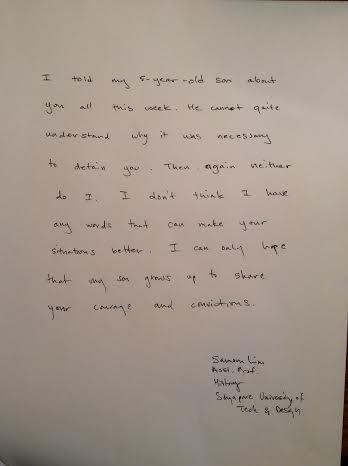 I told my 5-year-old son about
you all this week. He cannot quite
understand why it was necessary
to detain you. Then again neither
do I. I don't think I have
any words that can make your
situations better. I can only hope
that my son grows up to share
your courage and convictions.
Samson Lim
Asst. Prof.
History
Singapore University of
Tech & Design